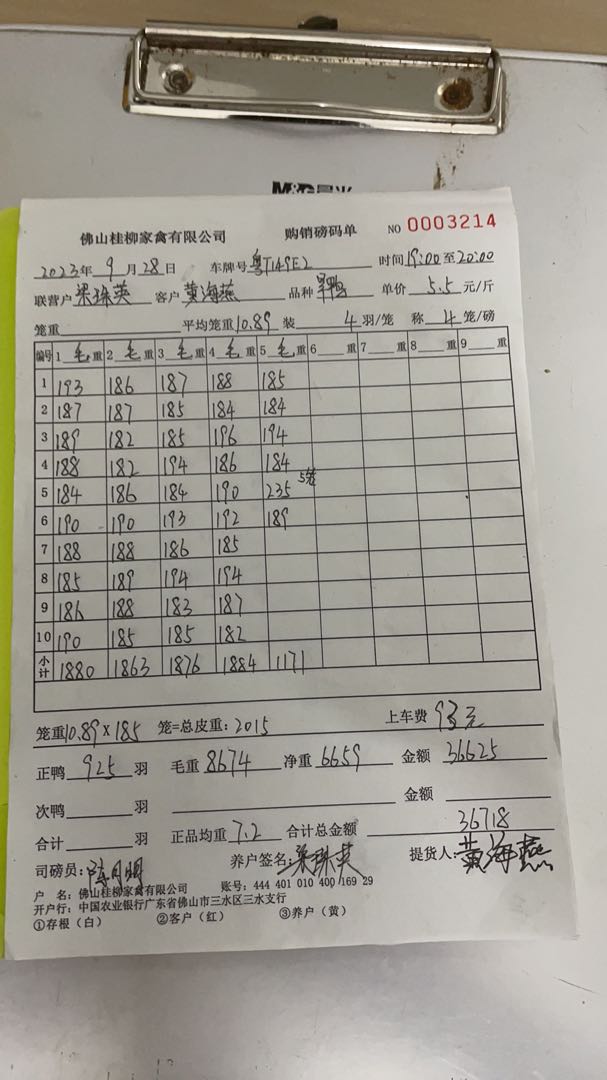 M&G晨光
佛山桂柳家禽有限公司 购销磅码单 NO 0003214
2023年 9月 28日 车牌号 粤T149E2 时间 19:00至20:00
联营户 梁珠英 客户 黄海燕 品种 旱鸭 单价 5.5 元/斤
笼重 平均笼重 10.89 装 4 羽/笼 称 4 笼/磅
编号 1 毛 重 2 毛 重 3 毛 重 4 毛 重 5 毛 重 6 重 7 重 8 重 9 重
1 193 186 187 188 185
2 187 187 185 184 184
3 189 182 185 196 194
4 188 182 194 186 184
5 184 186 184 190 235 5笼
6 190 190 193 192 189
7 188 188 186 185
8 185 189 194 194
9 186 188 183 187
10 190 185 185 182
小计 1880 1863 1876 1884 1171
笼重10.89×185 笼=总皮重: 2015 上车费 93元
正鸭 925 羽 毛重 8674 净重 6659 金额 36625
次鸭 羽 金额
合计 羽 正品均重 7.2 合计总金额 36718
司磅员: 养户签名: 梁珠英 提货人: 黄海燕
户 名: 佛山桂柳家禽有限公司 账号: 444 401 010 400 169 29
开户行: 中国农业银行广东省佛山市三水区三水支行
①存根(白) ②客户(红) ③养户(黄)